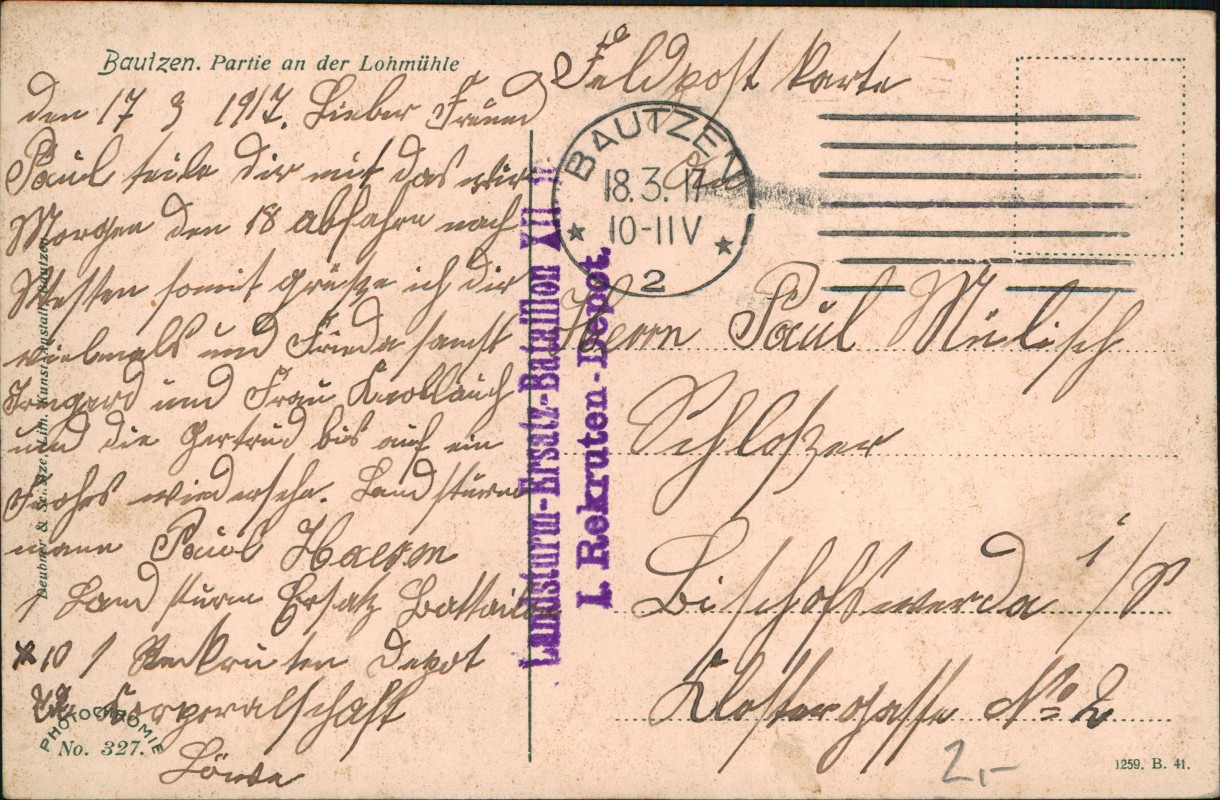 Bautzen. Partie an der Lohmühle
den 17 3 1917. Lieber Freund
Paul teile dir mit das wir
Morgen den 18 abfahrn nach
Westen somit grüße ich dir
vielmals und Frieda samt
Irmgard und Frau Knoblauch
und die Gertrud bis auf ein
Frohes wiedersehe. Landsturm
mann Paul
1 Landsturm Ersatz Battailon
1 Reckruten Depot
Corporalschaft
Deubner &
PHOTOCHROMIE
No. 327.
Landsturm-Ersatz-Bataillon XII
I. Rekruten-Depot.
Feldpost karte
BAUTZEN
18.3.17
10-11V
2
Herrn Paul
Schloszer
Bischofswerda i/S
Klostergasse No 2
2,-
1259. B. 41.